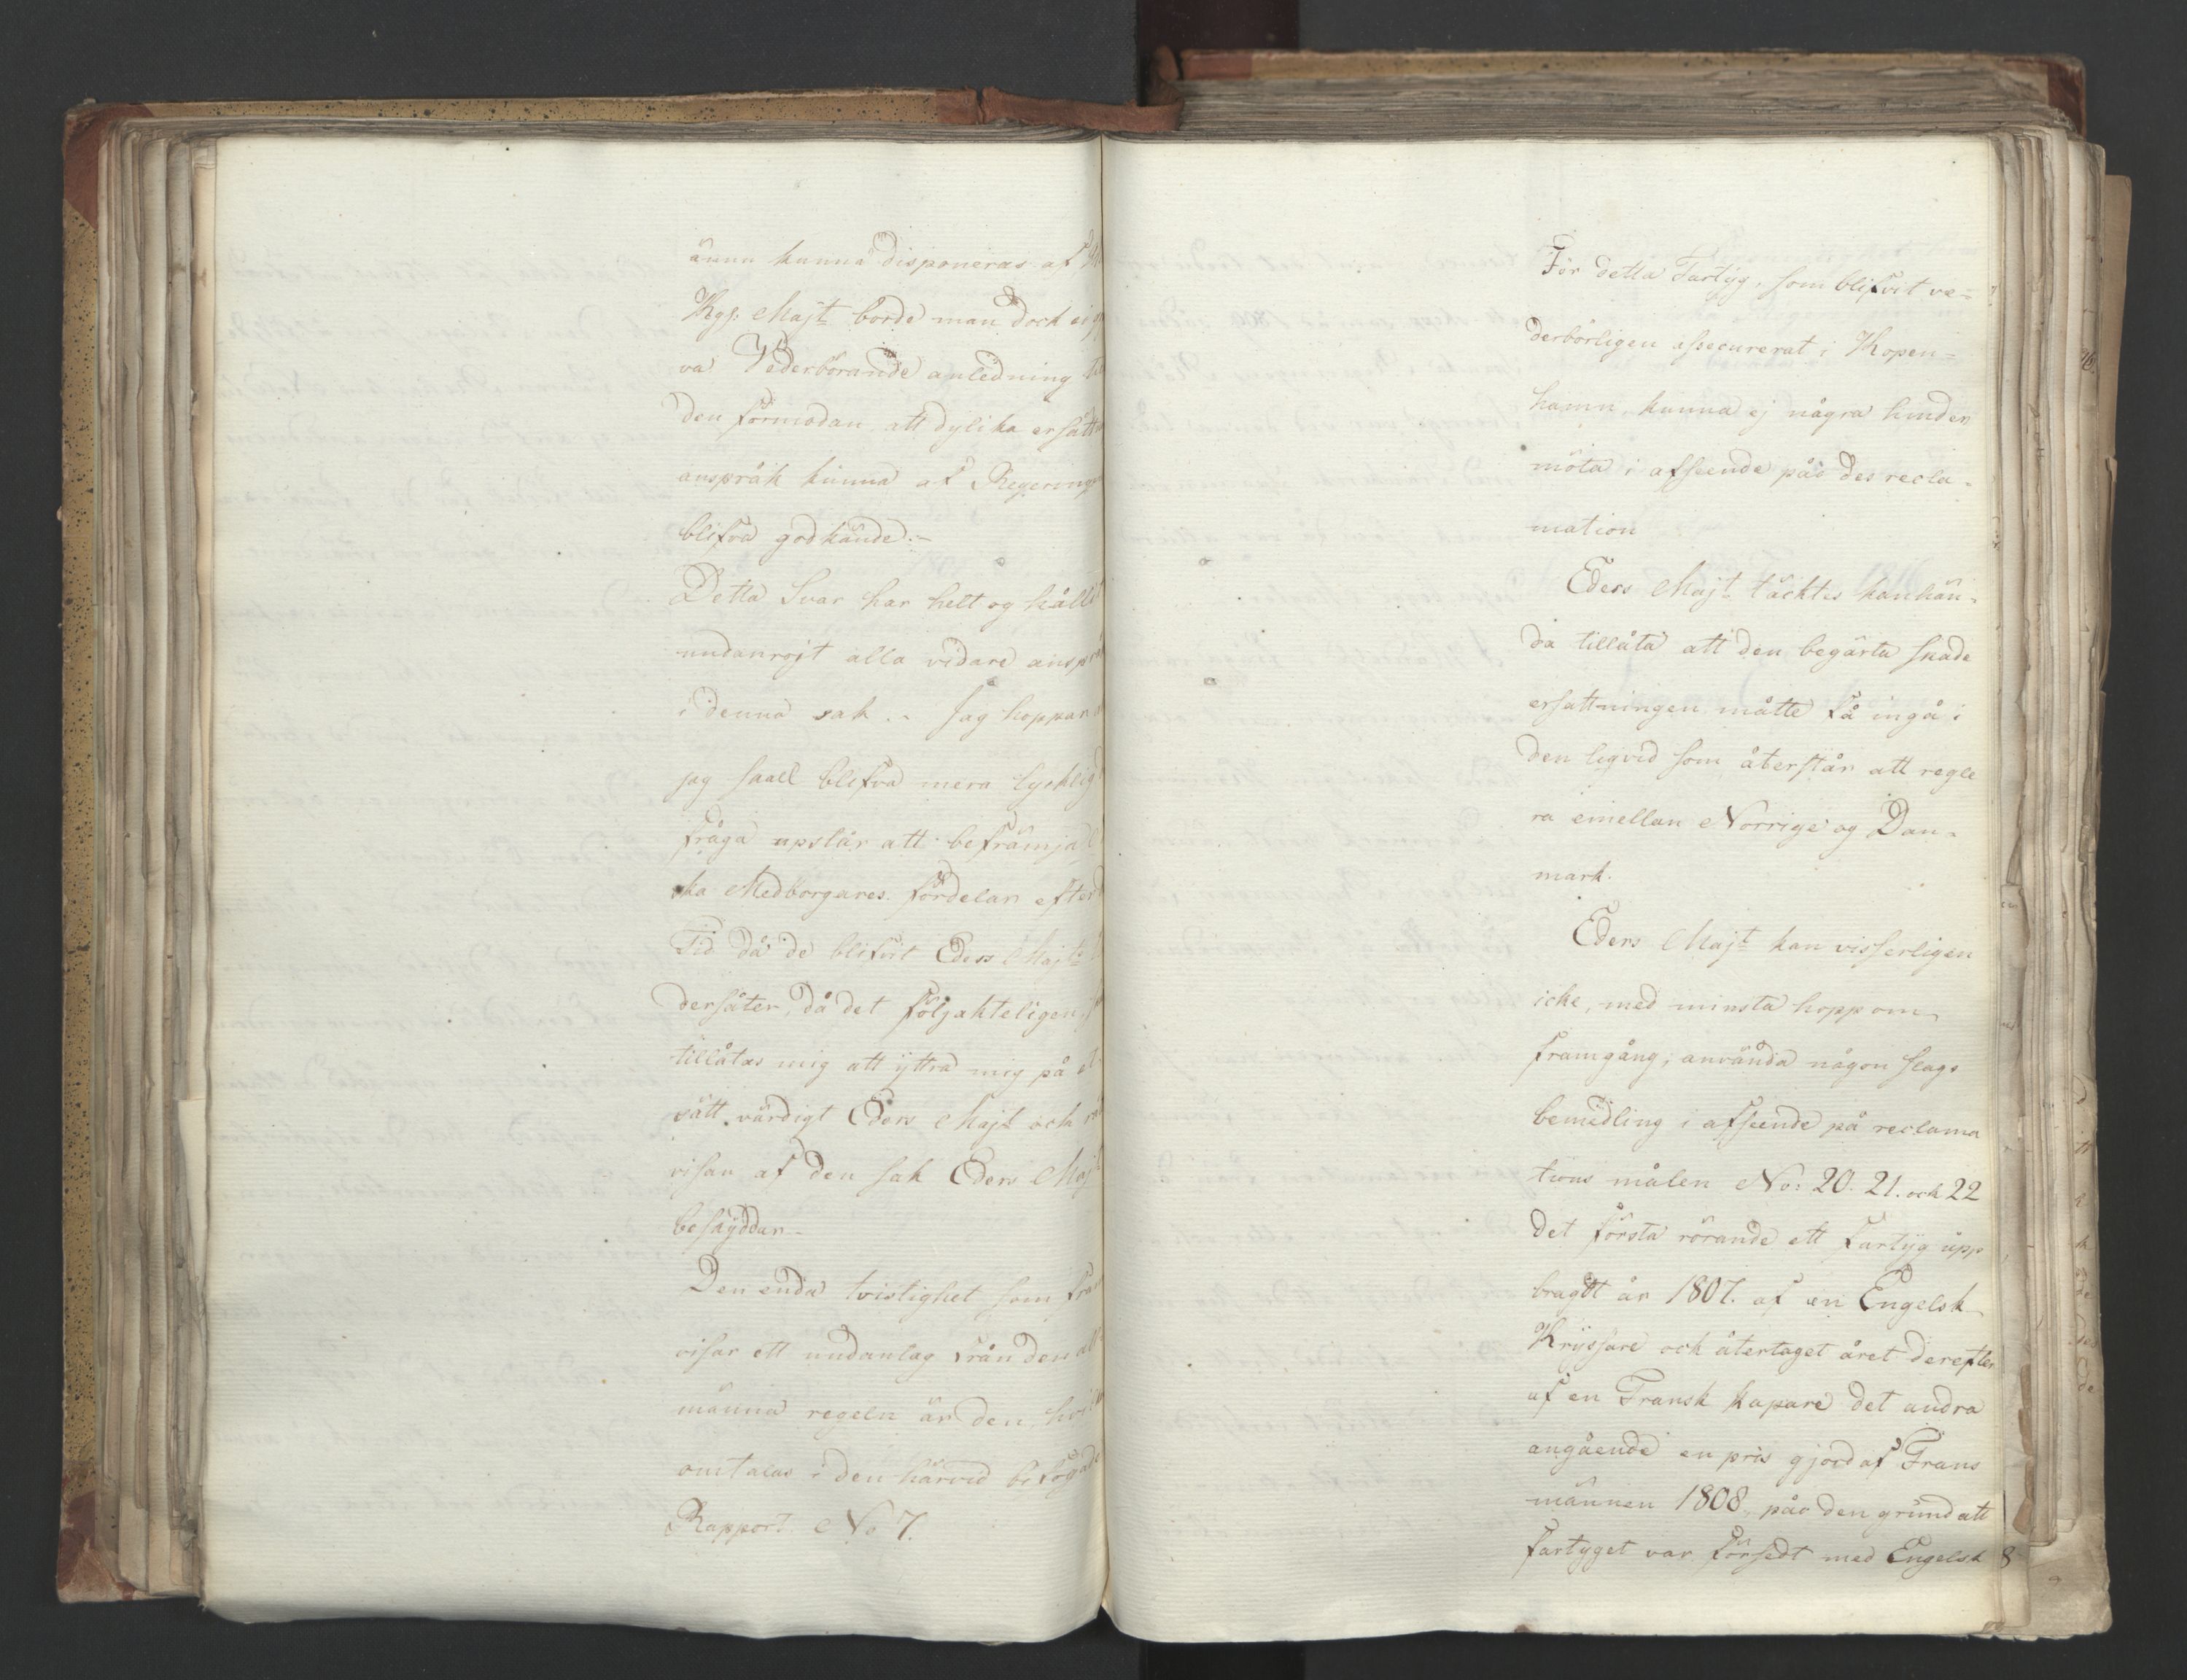 ännu kunna disponeras af
Kgs: Majt borde man dock ei
va Vederbörande anledning
den förmodan att dylika ersätt
anspråk kunna af Regering
blifva godkände.-
Detta Svar har helt og hållit
undanrojt alla vidare anspr
i denna sak.- Jag hoppar
jag skall blifva mera lycklig
fråga upstår att befrämja
ka Medborgares fördelar efter
Tid då de blifvit Eders Majts
dersåter, då det följakteligen
tillåtas mig att yttra mig på et
sätt värdigt Eders Majt och
visan af den sak Eders Maj
beskyddar.-
Den enda tvistighet som fra
visar ett undantag från den all
männa regeln är den hvil
omtalas i den härvid bifogade
Rapport No 7.
För detta Fartyg, som blifvit ve-
derbörligen assecurerat i Kopen=
hamn, kunna ej några hinder
möta i afseende på des recla-
mation
Eders Majt täcktes kanhän-
da tillåta att den begärta skade
ersattningen måtte få ingå i
den liqvid som återstår att regle
ra emellan Norrige og Dan-
mark.
Eders Majt kan visserligen
icke, med minsta hopp om
framgång, använda någon slags
bemedling i afseende på reclama
tions målen No: 20. 21. och 22
det första rörande ett Fartyg upp
bragtt år 1807. af en Engelsk
Kryssare och återtaget året derefter
af en Fransk kapare det andra
angåënde en pris gjord af Frans
männen 1808 på den grund att
fartyget var försedt med Engelsk